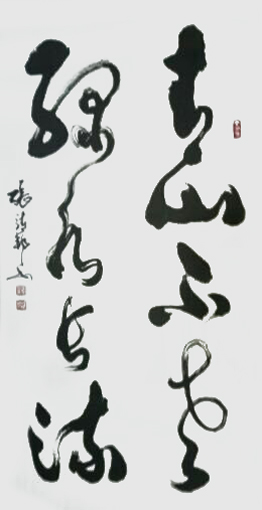 青山不老
绿水长流